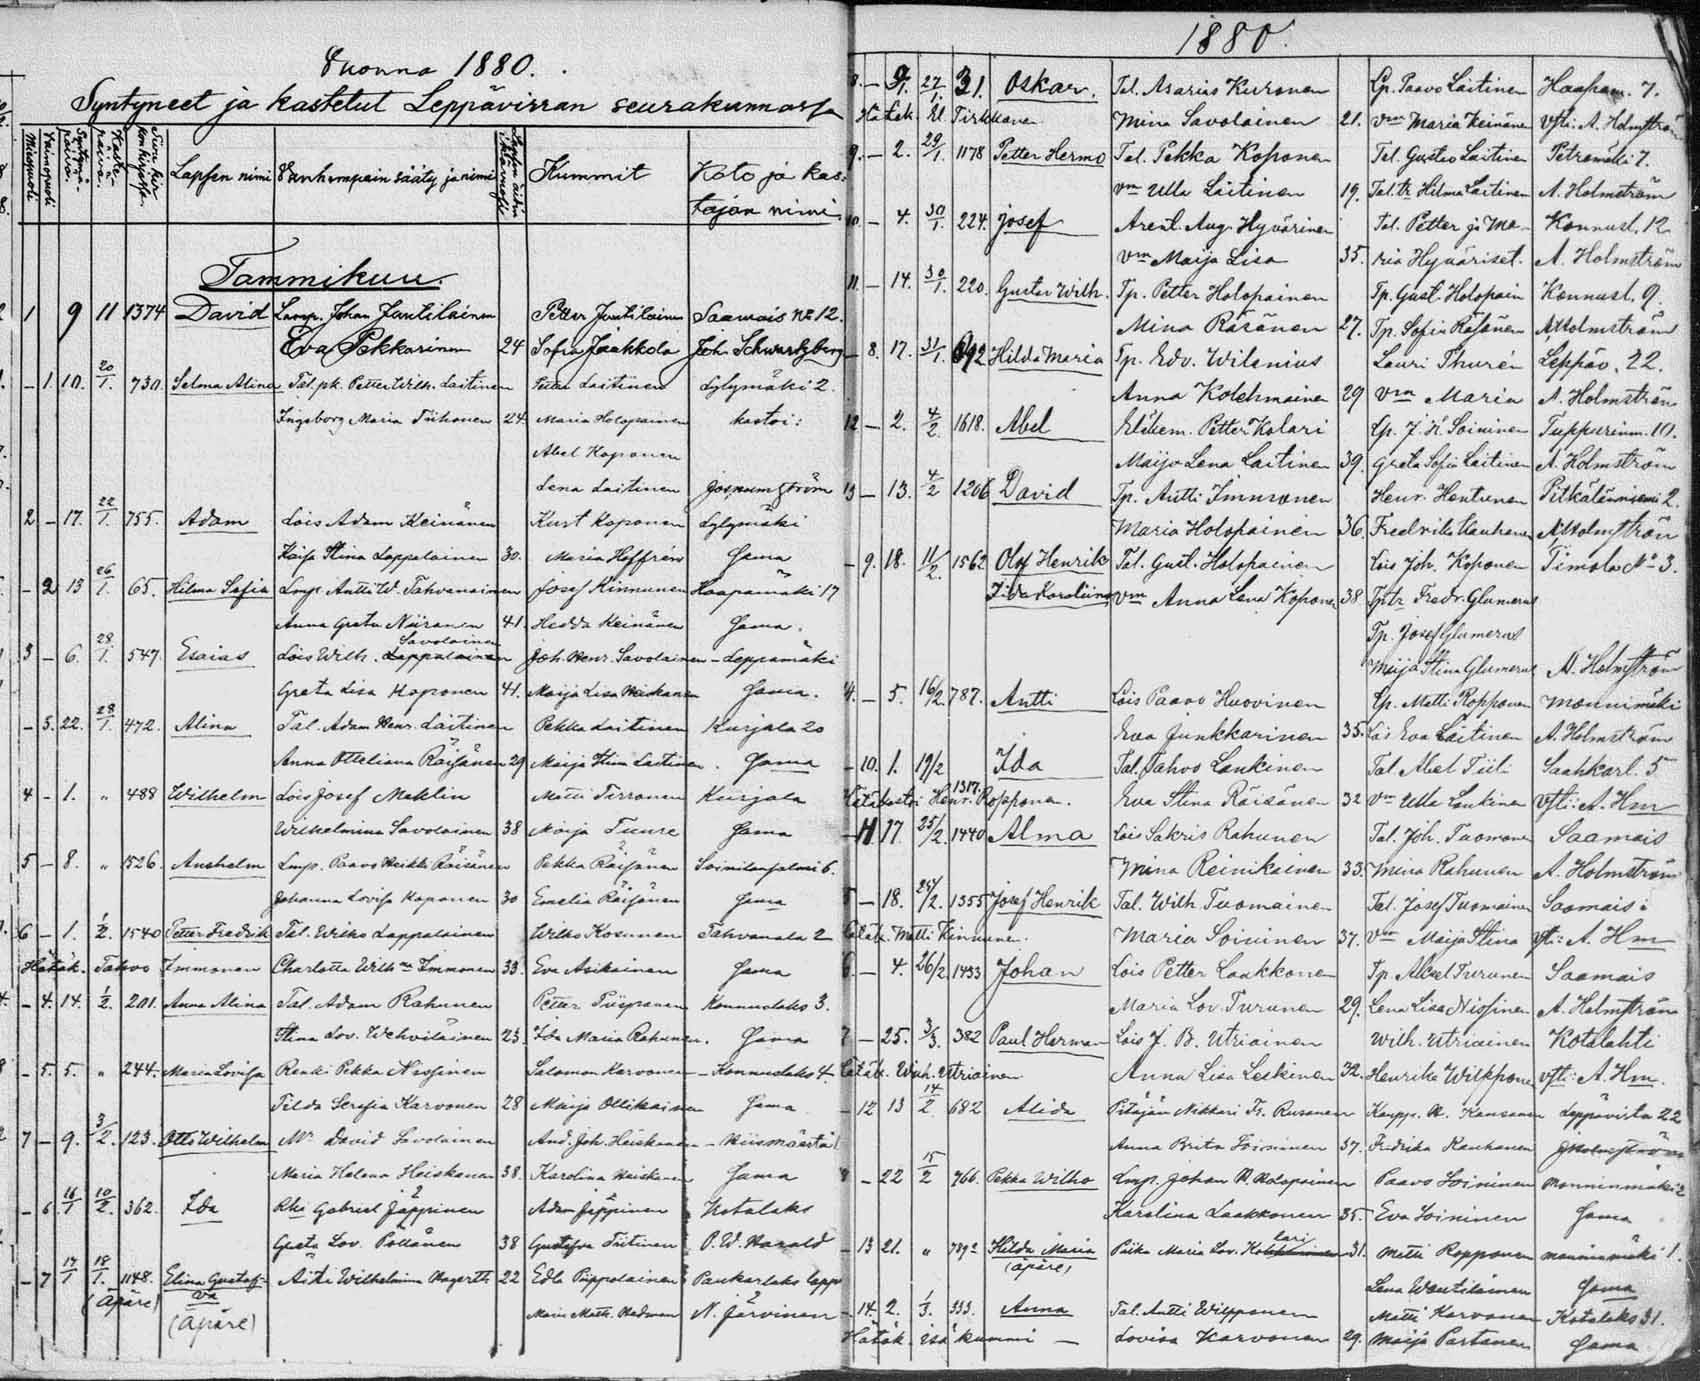 Vuonna 1880.
Syntyneet ja kastetut Leppävirran seurakunnassa
Miespuoli
Vaimopuoli
Syntymäpäivä.
Kastepäivä.
Lapsen nimi Vanhempain sääty ja nimi Lapsen äidin ikävuosi Kummit Koto ja kas-
tajan nimi
Tammikuu.
1 9 11 1374 David Lamp. Johan Jantilainen Petter Jantilainen Saamais No 12.
Eva Pekkarinen 24 Sofia Jaakkola Joh. Schwartzberg
- 1. 10. 20/1. 730. Selma Alina Tal. pk. Petter Wilh. Laitinen Petter Laitinen Lylymäki 2.
Ingeborg Maria Tiihonen 24. Maria Holopainen kastoi:
Abel Koponen
Lena Laitinen
2 - 17. 22/1. 755. Adam Lois Adam Keinänen Kust. Koponen Lylymäki
Kaisa Stina Lappalainen 30. Maria Hoffrén Sama
- 2 13 26/1. 65. Hilma Sofia Lmp. Antti W. Tahvanainen Josef Kinnunen Haapamäki 17
Anna Greta Niiranen 41. Hedda Keinänen Sama.
Savolainen
3 - 6. 28/1. 547. Esaias Lois Wilh. Lappalainen Joh. Henr. Savolainen - Leppämäki
Greta Lisa Koponen 41. Maija Lisa Heiskanen Sama.
- 3. 22. 28/1. 472. Alina Tal. Adam Henr. Laitinen Pekka Laitinen Kurjala 20
Anna Otteliana Räisänen 29 Maija Stina Laitinen. Sama
4 - 1. " 488 Wilhelm Lois Josef Meklin Matti Tirronen Kurjala
Wilhelmina Savolainen 38 Maija Tuure Sama
5 - 8. " 1526. Anshelm Lmp. Paavo Heikki Räisänen Pekka Räisänen Soinilansalmi 6.
Johanna Lovisa Koponen 30 Emelia Räisänen Sama
6 - 1. 1/2. 1540 Petter Fredrik Tal. Wilho Lappalainen Wilho Kosunen Tahvanala 2
Hätäk. Tahvo Immonen Charlotta Wilh:na Immonen 33. Eva Asikainen Sama
- 4. 14. 1/2. 201. Anna Alina Tal. Adam Rahunen Petter Piispanen Konnuslaks 3.
Stina Lov. Wehviläinen 23. Ida Maria Rahunen. Sama
- 5. 5. " 244. Maria Lovisa Renki Pekka Nissinen Salomon Karvonen - Konnuslaks 4.
Tilda Serafia Karvonen 28 Maija Ollikainen Sama
7 - 9. 3/2. 123. Otto Wilhelm Mr David Savolainen And. Joh. Heiskanen - Niismäestä
Maria Helena Heiskanen 38. Karolina Heiskanen Sama
- 6. 16/1 10/2. 362. Ida Gabriel Jäppinen Adam Jäppinen Kotalaks
Greta Lov. Pöllänen 38 Gustafva Tiitinen P. W. Harald
- 7 17/1 18/1. 1148. Elina Gustaf- Äiti Wilhelmina Hagerth 22 Edla Piippolainen Paukarlaks
(äpäre) va Maria Math. Hedman N. Järvinen
(äpäre)
1880.
8. - 9. 27/1. 31. Oskar. Tal. Asarias Kuronen Lp. Paavo Laitinen Haapam. 7.
Hätäk. kl. Tirkkonen Mina Savolainen 21. vm Maria Keinänen Vsti: A. Holmström
9. - 2. 29/1. 1178 Petter Herm. Tal. Pekka Koponen Tal. Gustav Laitinen Petromäki 7.
vm Ulla Laitinen 19. Tal. tr. Hilma Laitinen A. Holmström
10 - 4. 30/1. 224. Josef Arent. Aug. Hyvärinen Tal. Petter ja Ma- Konnusl. 12
vm Maija Lisa 35. ria Hyväriset. A. Holmström
11. - 14. 30/1. 220. Gustav Wilh. Tp. Petter Holopainen Tp. Gust. Holopain Konnusl. 9.
Mina Räsänen 27. Tp. Sofia Räsänen A. Holmström
- 8. 17. 31/1. 692 Hilda Maria Tp. Edv. Wilenius Lauri Thurén Leppäv. 22.
Anna Kolehmainen 29 vm Maria A. Holmström
12 - 2. 4/2. 1618. Abel Petter Kolari Lp. J. H. Soininen Tuppurinm. 10.
Maija Lena Laitinen 39. Greta Sofia Laitinen A. Holmström
13 - 13. 4/2 1206 David Tp. Antti Immonen Henr. Hentunen Pitkälänniemi 2.
Maria Holopainen 36. Fredrika Kauhanen A. Holmström
- 9. 18. 11/2. 1562 Olof Henrik Tal. Gust. Holopainen Lois Joh. Koponen Timola No 3.
Ida Karoliina vm Anna Lena Koponen 38. Tptr Fredr. Glumerus
Tp. Josef Glumerus
Maija Stina Glumerus A. Holmström
- 5. 16/2. 787. Antti Lois Paavo Huovinen Lp. Matti Ropponen Monnimäki
Eva Junkkarinen 35. Lois Eva Laitinen A. Holmström
- 10. 1. 19/2 Ida Tal. Tahvo Lankinen Tal. Abel Tiili Saahkarl. 5
1317.
Hätäkastoi Henr. Ropponen. Eva Stina Räisänen 32 Vm Ulla Lankinen Vsti: A. Hm
- 11 17. 25/2. 1440 Alma Lois Sakris Rahunen Tal. Joh. Tuomainen Saamais
Mina Reinikainen 33. Mina Rahunen A. Holmström
5 - 18. 25/2. 1355 Josef Henrik Tal. Wilh. Tuomainen Tal. Josef Tuomainen Saamais
Hätäk. Matti Kinnunen. Maria Soininen 37. Vm Maija Stina Vsti: A. Hm
6. - 4. 26/2. 1433 Johan Lois Petter Laakkonen Tp. Aksel Turunen Saamais
Maria Lov. Turunen 29. Lena Lisa Nissinen A. Holmström
7 - 25. 3/3. 382 Paul Herman Lois J. B. Utriainen Wilh. Utriainen Kotalahti
Hätäk. Wilh. Utriainen Anna Lisa Leskinen 32. Henrika Wilkponen Vsti: A. Hm.
- 12 13 14/2 682 Alida Pitäjän Nikkari Fr. Rusanen Kaupp. K. Kansanen Leppävirta 22
Anna Brita Soininen 37. Fredrika Kauhanen A. Holmström
8 - 22 15/2 766. Pekka Wilho Lmp. Johan H. Holopainen Paavo Soininen Monninmäki 2
Karolina Laakkonen 35. Eva Soininen Sama
- 13 21. " 789 2 Hilda Maria Piika Maria Lov. Kolari 31. Matti Ropponen Monninmäki 1.
(äpäre) Lena Wantilainen Sama
- 14. 2. 1/3. 333. Anna Tal. Antti Wilpponen Matti Karvonen Kotalaks 31.
Hätäk. isä kummi - Lovisa Karvonen 29. Maija Partanen Sama